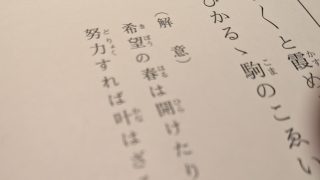 くと霞め
ひかるゝ駒のこゑい
（解意）
希望の春は開けたり
努力すれば叶はざ